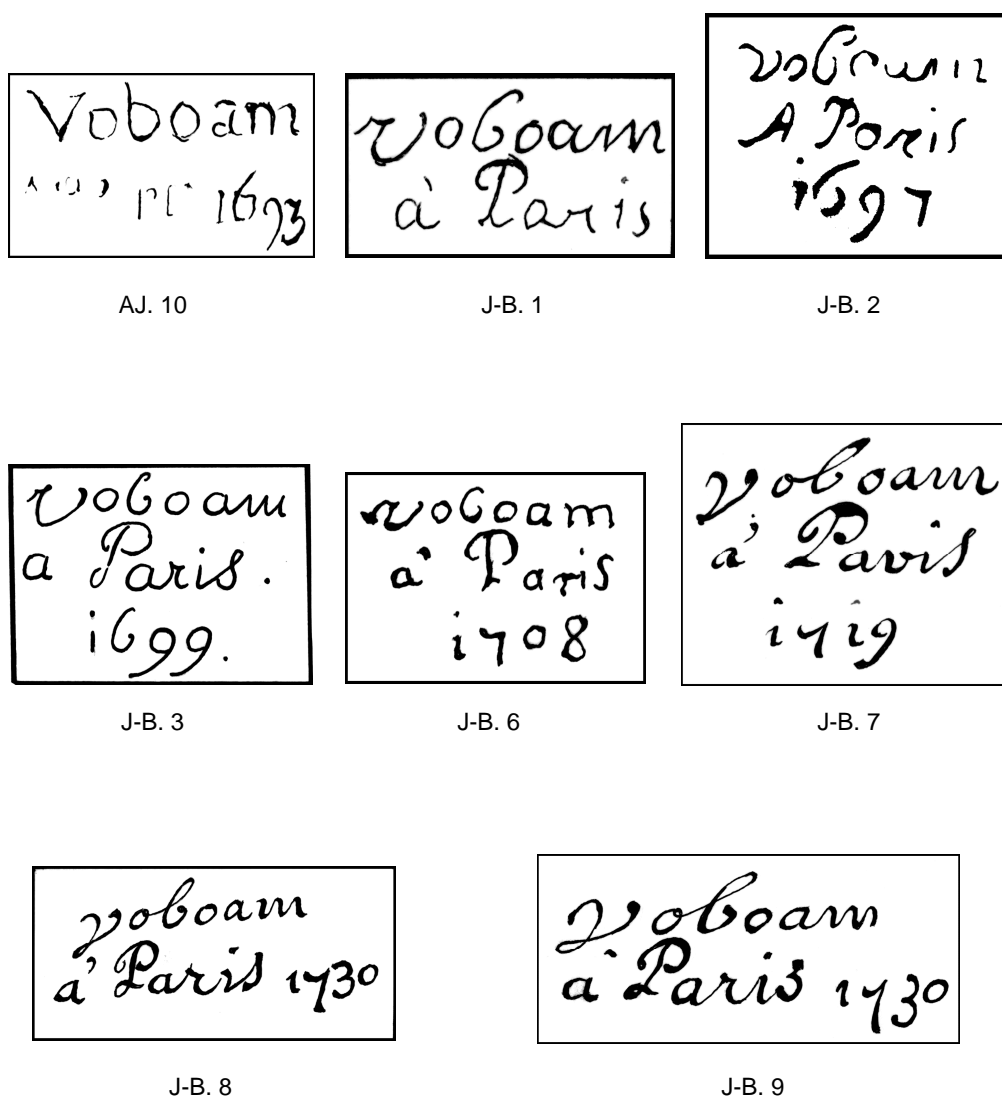 Voboam
1693
AJ. 10
voboam
à Paris
J-B. 1
A Paris
1697
J-B. 2
voboam
a Paris.
1699.
J-B. 3
voboam
à Paris
1708
J-B. 6
voboam
à Paris
1719
J-B. 7
voboam
à Paris 1730
J-B. 8
voboam
à Paris 1730
J-B. 9